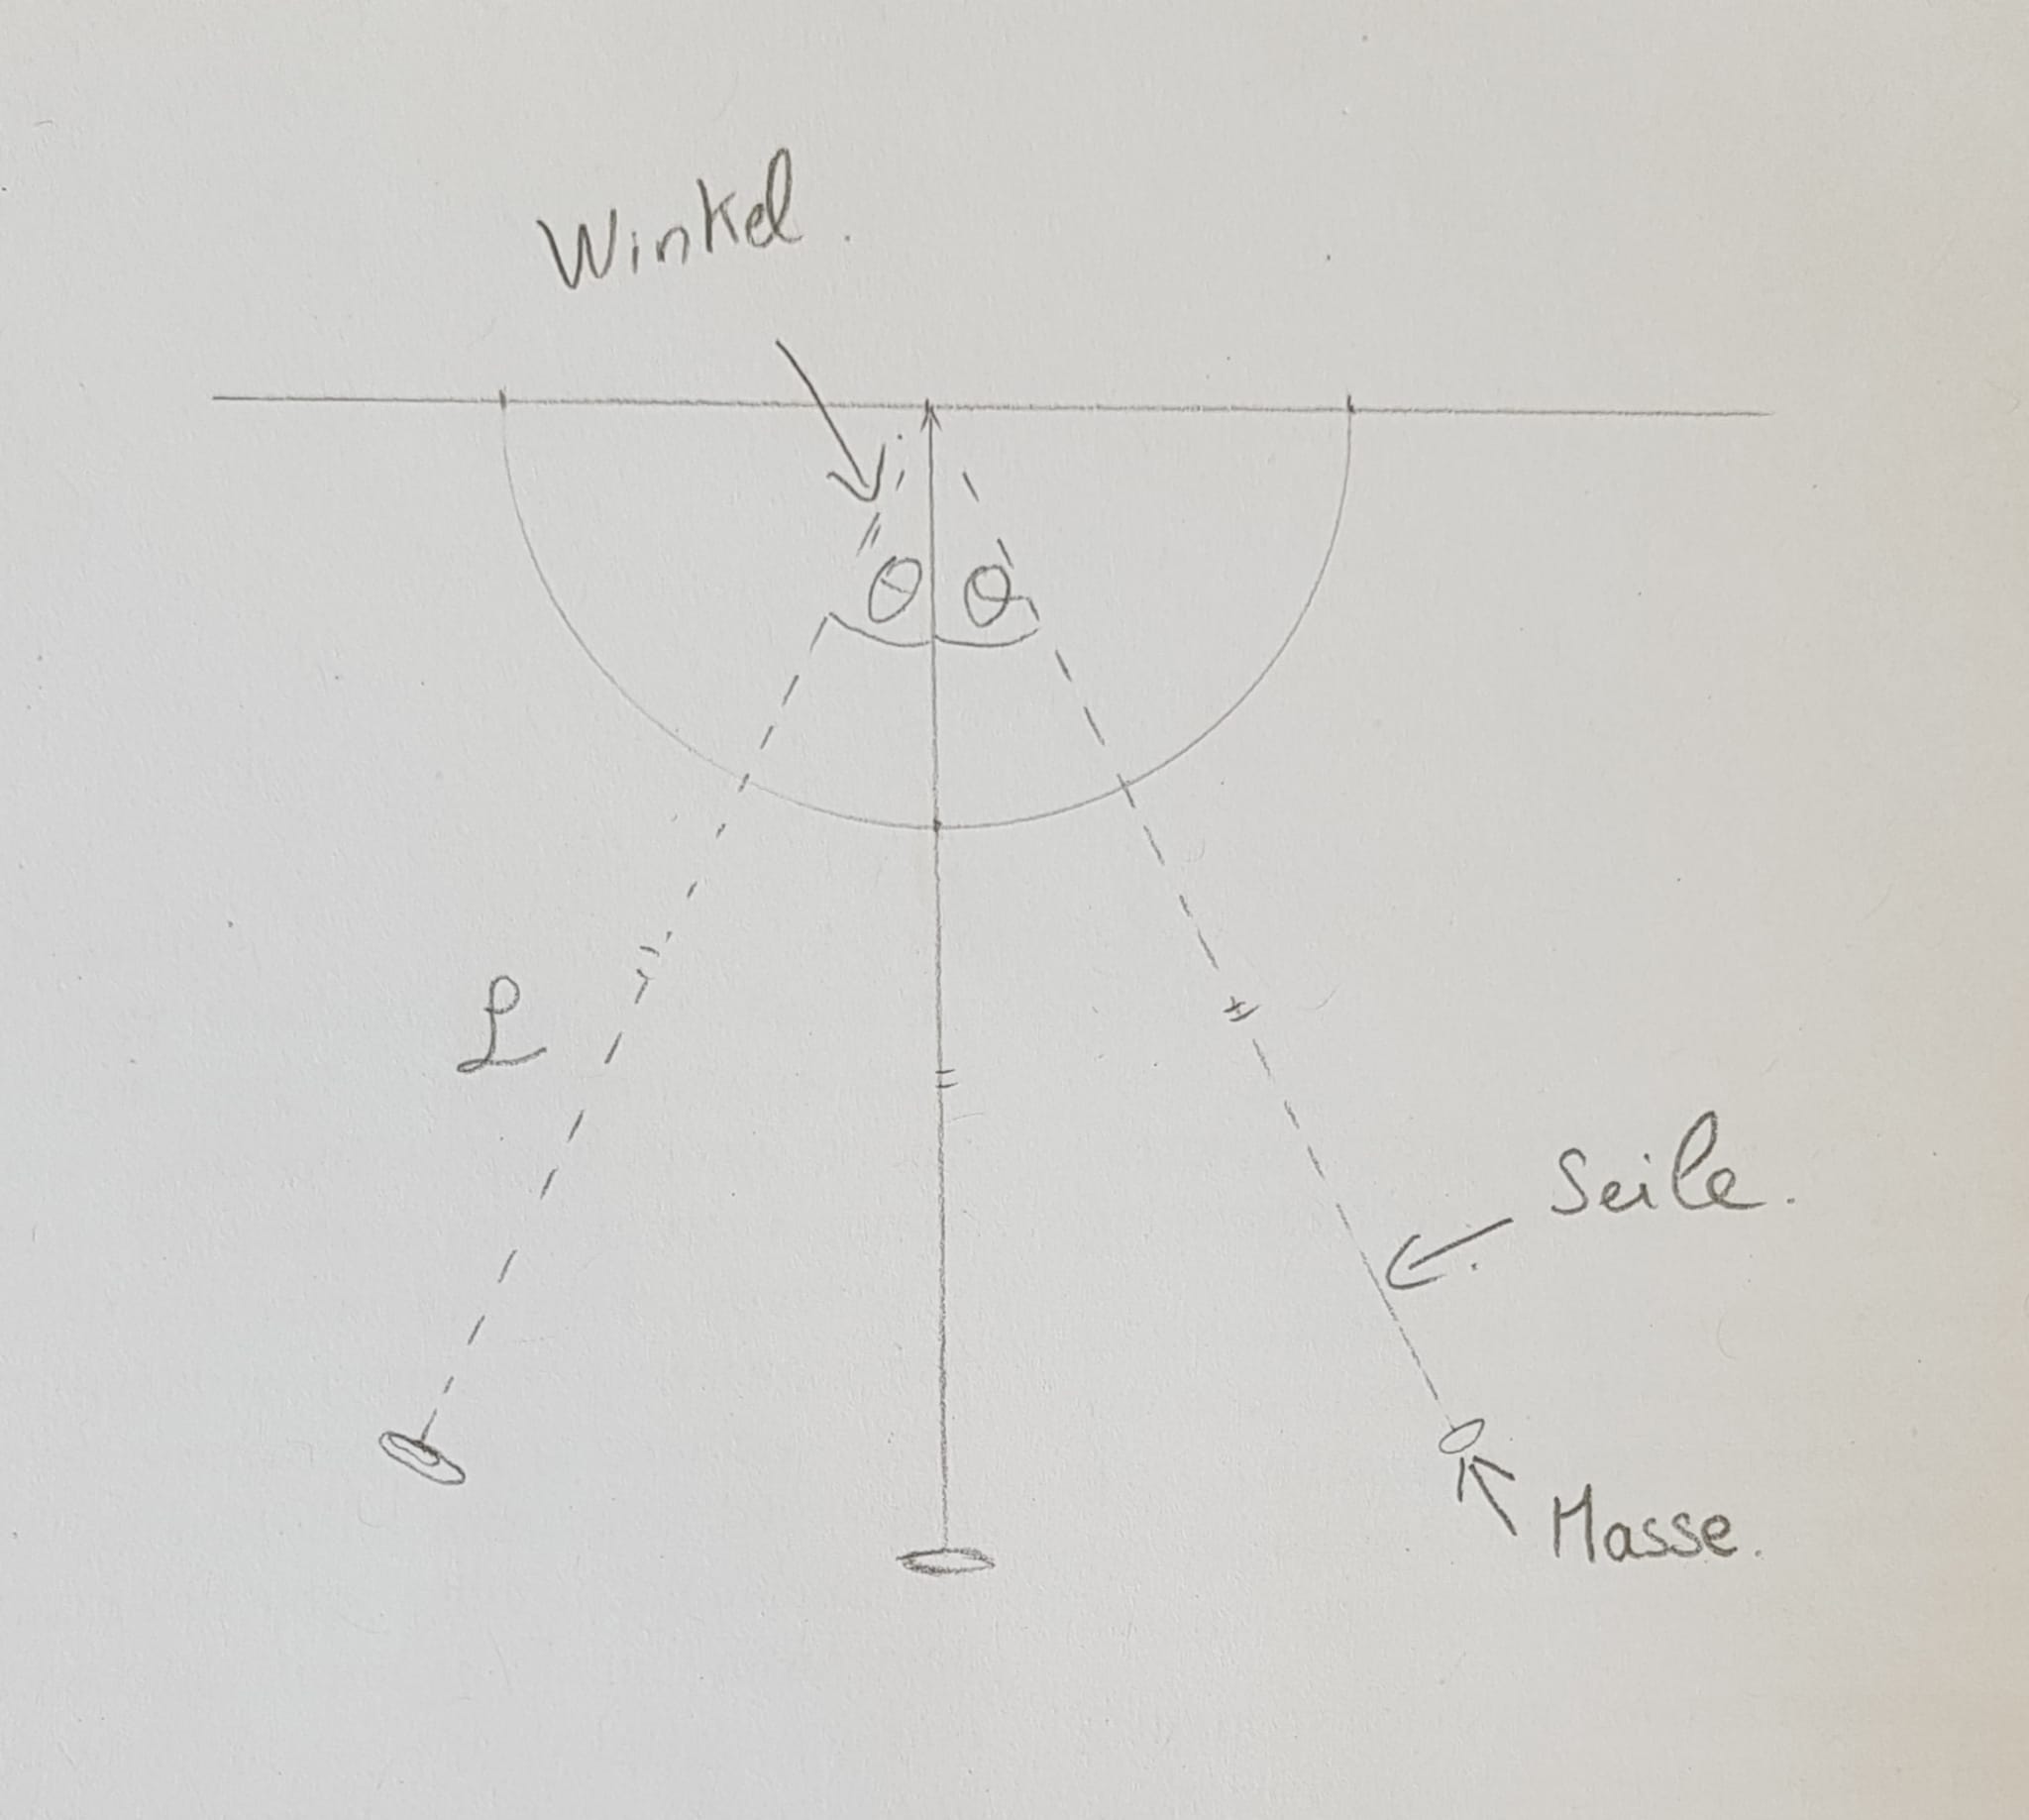 Winkel.
θ θ
L
Seile.
Masse.